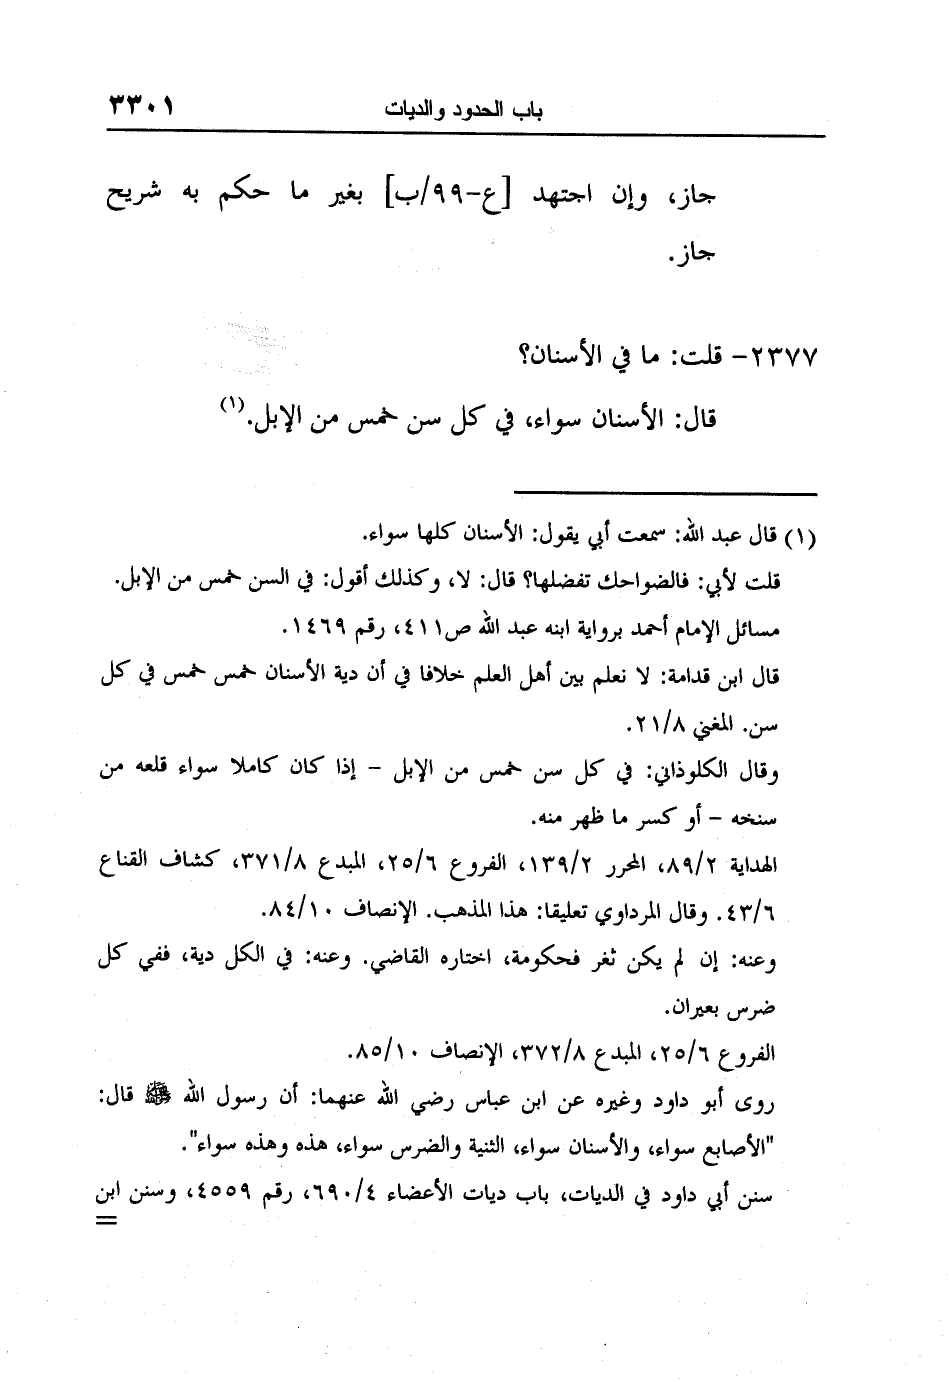 باب الحدود والديات ٣٣٠١
جاز، وإن اجتهد [ع-٩٩/ب] بغير ما حكم به شريح
جاز.
٢٣٧٧- قلت: ما في الأسنان؟
قال: الأسنان سواء، في كل سن خمس من الإبل.(١)
(١) قال عبد الله: سمعت أبي يقول: الأسنان كلها سواء.
قلت لأبي: فالضواحك تفضلها؟ قال: لا، وكذلك أقول: في السن خمس من الإبل.
مسائل الإمام أحمد برواية ابنه عبد الله ص٤١١، رقم ١٤٦٩.
قال ابن قدامة: لا نعلم بين أهل العلم خلافا في أن دية الأسنان خمس خمس في كل
سن. المغني ٢١/٨.
وقال الكلوذاني: في كل سن خمس من الإبل - إذا كان كاملا سواء قلعه من
سنخه - أو كسر ما ظهر منه.
الهداية ٨٩/٢، المحرر ١٣٩/٢، الفروع ٢٥/٦، المبدع ٣٧١/٨، كشاف القناع
٤٣/٦. وقال المرداوي تعليقا: هذا المذهب. الإنصاف ٨٤/١٠.
وعنه: إن لم يكن ثغر فحكومة، اختاره القاضي. وعنه: في الكل دية، ففي كل
ضرس بعيران.
الفروع ٢٥/٦، المبدع ٣٧٢/٨، الإنصاف ٨٥/١٠.
روى أبو داود وغيره عن ابن عباس رضي الله عنهما: أن رسول الله ﷺ قال:
"الأصابع سواء، والأسنان سواء، الثنية والضرس سواء، هذه وهذه سواء".
سنن أبي داود في الديات، باب ديات الأعضاء ٦٩٠/٤، رقم ٤٥٥٩، وسنن ابن
=